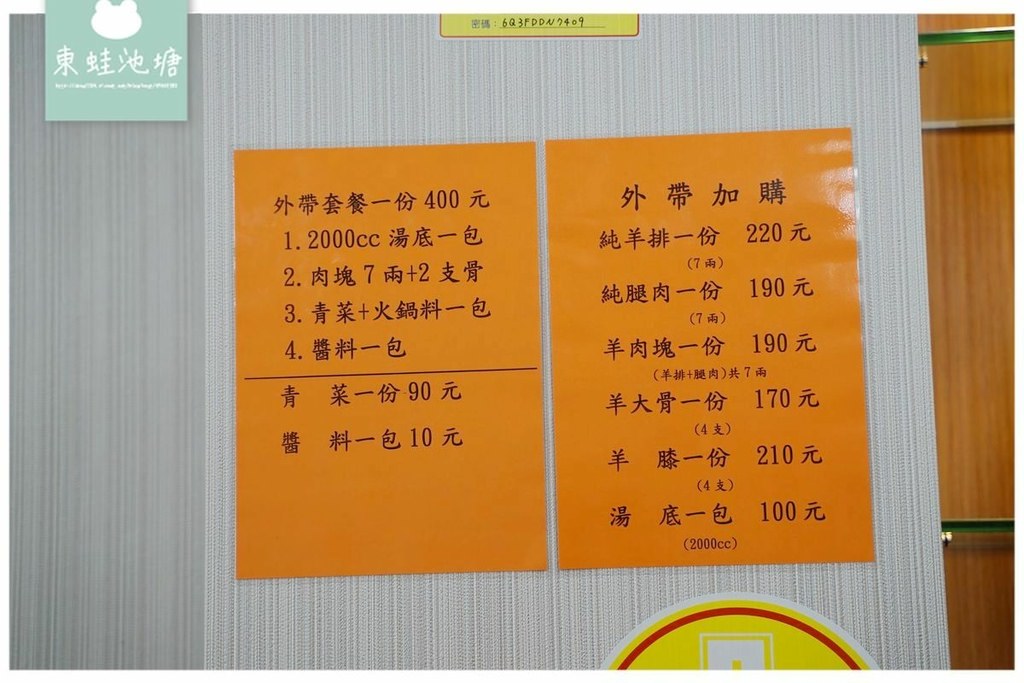 東蛙池塘
密碼：6Q3FDDN7409
外帶套餐一份 400 元
1. 2000cc 湯底一包
2. 肉塊 7 兩+2 支骨
3. 青菜+火鍋料一包
4. 醬料一包
青 菜一份 90 元
醬 料一包 10 元
外帶加購
純羊排一份 220 元
(7 兩)
純腿肉一份 190 元
(7 兩)
羊肉塊一份 190 元
(羊排+腿肉)共 7 兩
羊大骨一份 170 元
(4 支)
羊 膝一份 210 元
(4 支)
湯 底一包 100 元
(2000cc)